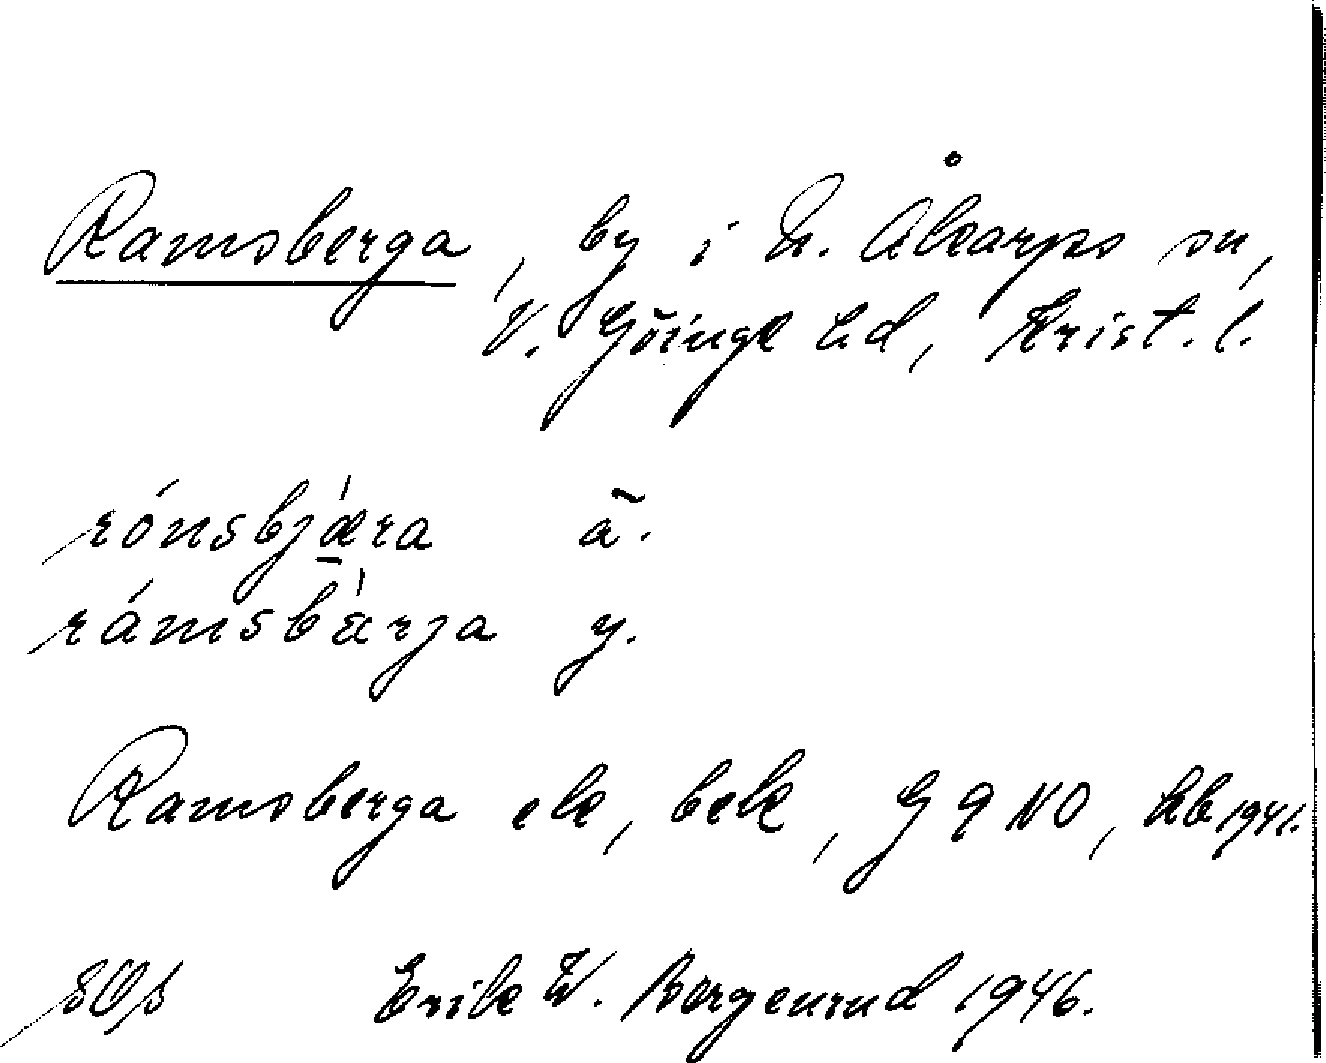 Ramsberga, by i N. Åkarps sn,
V. Göinge hd, Krist. l.
rónsbjæra ä.
rámsbärja y.
Ramsberga ek, bek, G 9 NO, kb 1941.
SOS Erik W. Bergenrud 1946.